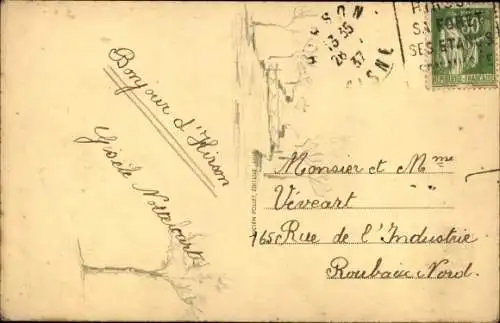 HIRSON
13 35
28
37
AISNE
HIRSON
SA FORÊT
SES ETANGS
Bonjour d'Hirson
Gisèle
Monsieur et Mme
Véveart
165 Rue de l'Industrie
Roubaix Nord.